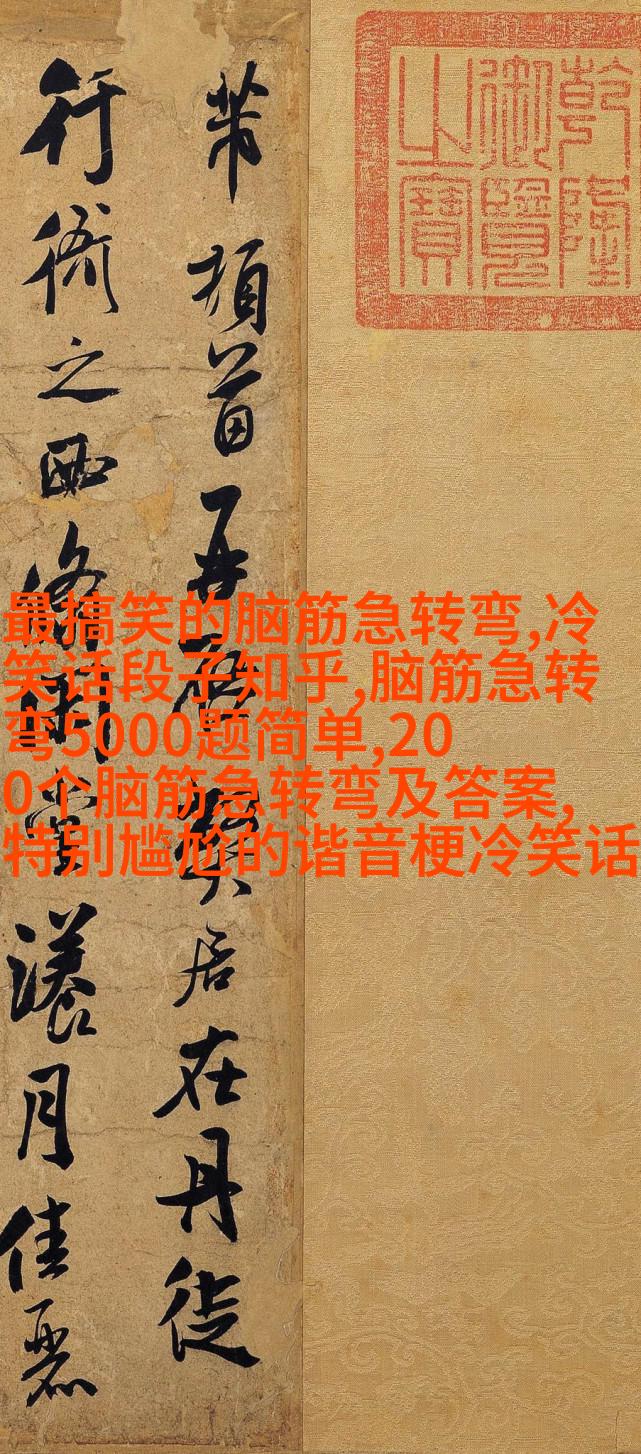 乾隆
御覽
之寶
芾頓首再啓弊居在丹徒
行衙之西翛閑堂漾月佳麗
最搞笑的脑筋急转弯,冷
笑话段子知乎,脑筋急转
弯5000题简单,20
0个脑筋急转弯及答案,
特别尴尬的谐音梗冷笑话